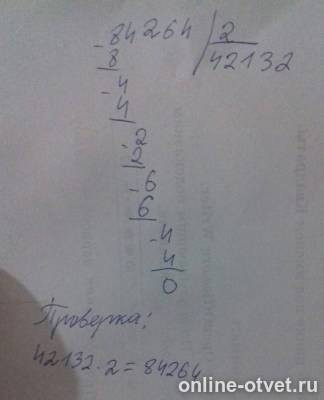 84264 | 2
-8 42132
-4
4
-2
2
-6
6
-4
4
0
Проверка:
42132·2=84264
online-otvet.ru